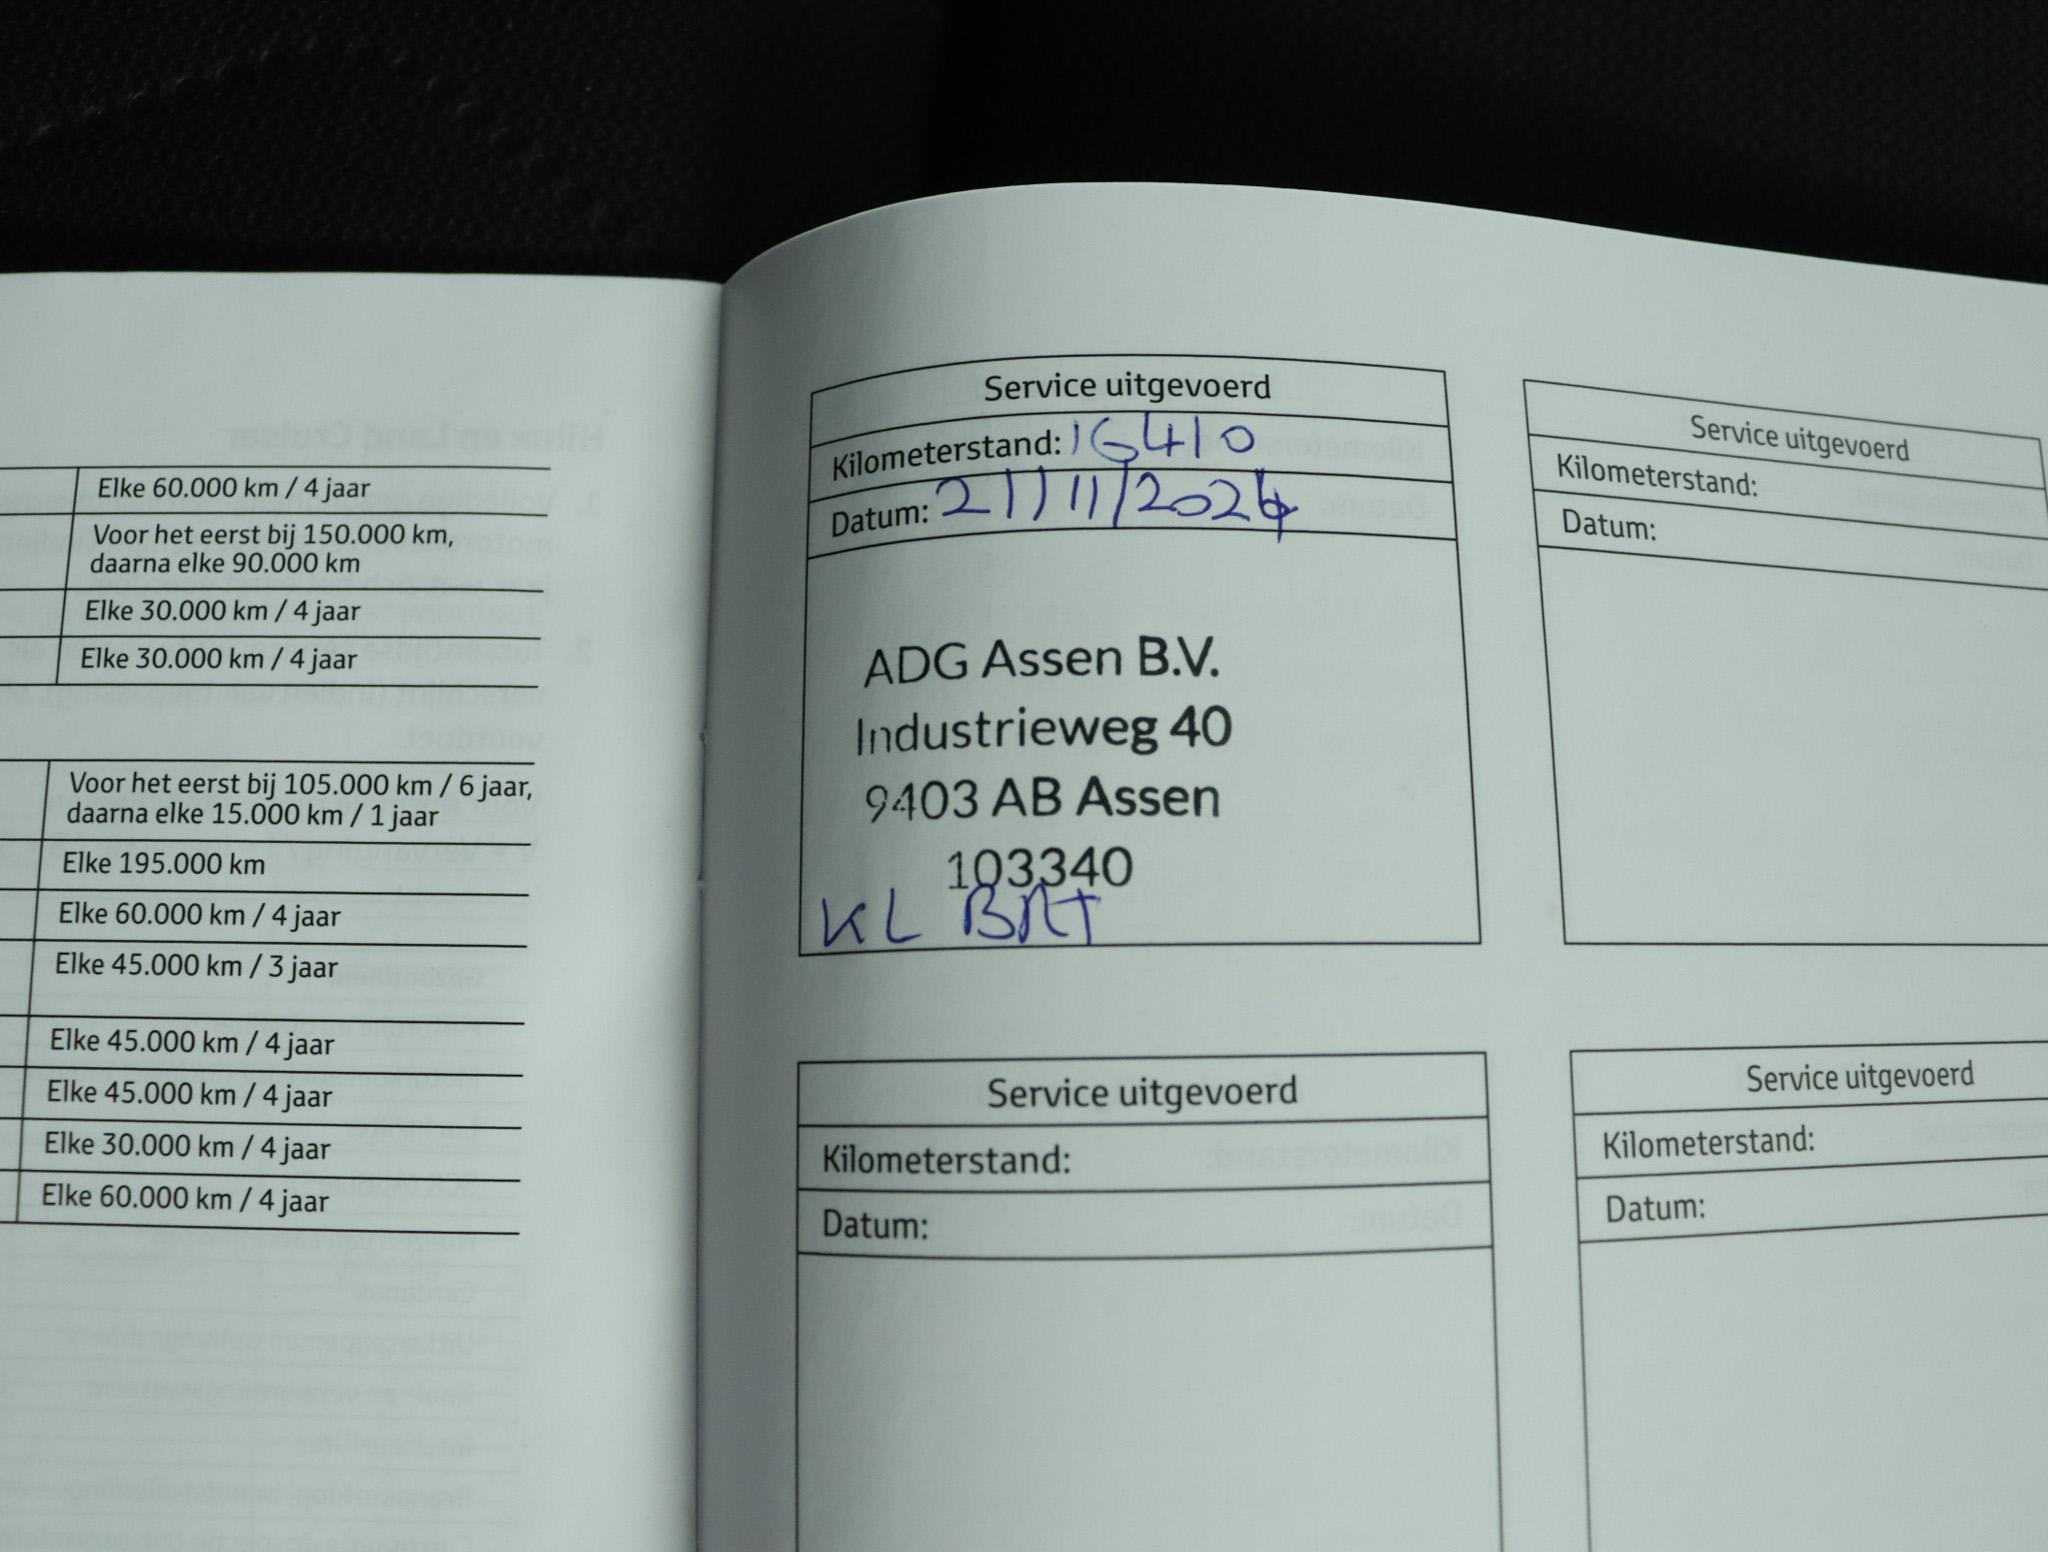 Elke 60.000 km / 4 jaar
Voor het eerst bij 150.000 km,
daarna elke 90.000 km
Elke 30.000 km / 4 jaar
Elke 30.000 km / 4 jaar
Voor het eerst bij 105.000 km / 6 jaar,
daarna elke 15.000 km / 1 jaar
Elke 195.000 km
Elke 60.000 km / 4 jaar
Elke 45.000 km / 3 jaar
Elke 45.000 km / 4 jaar
Elke 45.000 km / 4 jaar
Elke 30.000 km / 4 jaar
Elke 60.000 km / 4 jaar
Service uitgevoerd
Kilometerstand: 16410
Datum: 21/11/2024
ADG Assen B.V.
Industrieweg 40
9403 AB Assen
103340
KL BAT
Service uitgevoerd
Kilometerstand:
Datum:
Service uitgevoerd
Kilometerstand:
Datum:
Service uitgevoerd
Kilometerstand:
Datum: